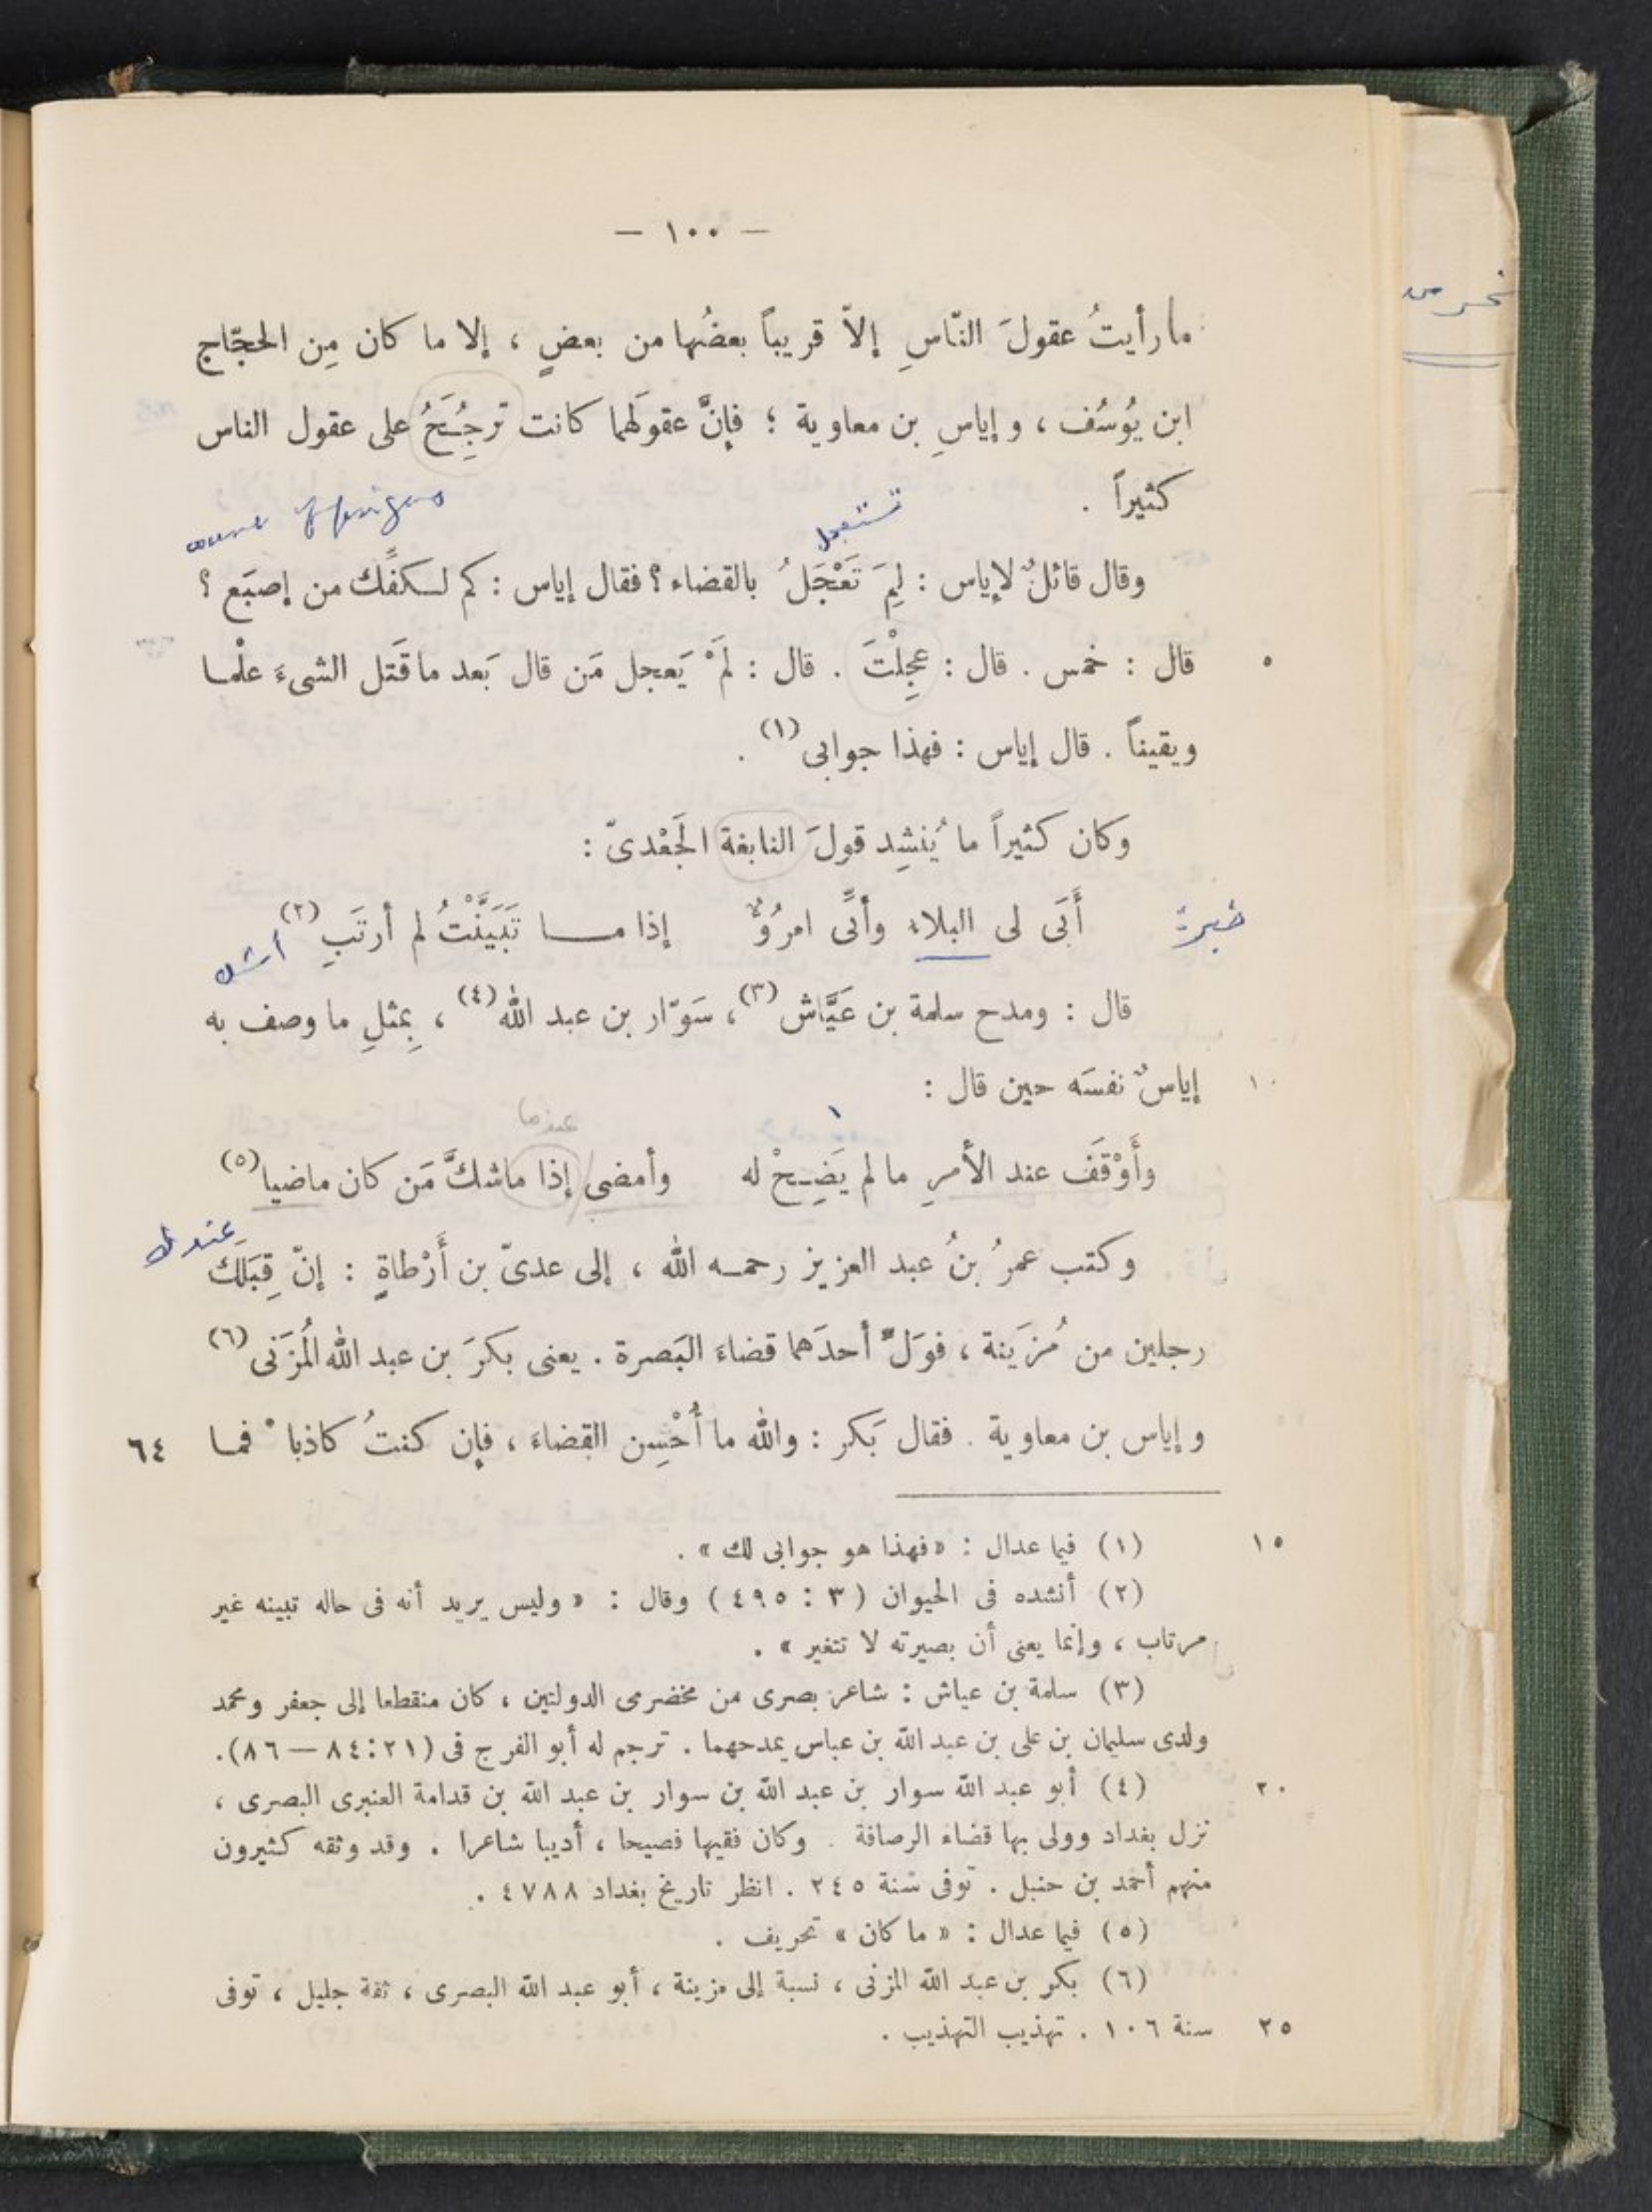 — ١٠٠ —
ما رأيتُ عقولَ النّاسِ إلاّ قريباً بعضُها من بعضٍ ، إلا ما كان مِن الحجّاج
ابن يُوسُف ، وإياسِ بن معاوية ؛ فإنَّ عقولَهما كانت تَرجُِحَُ على عقول الناس
كثيراً .
تستعجل
وقال قائلٌ لإياس : لِمَ تَعْجَلُ بالقضاء؟ فقال إياس : كم لكفِّك من إصبَع ؟
٥ قال : خمس . قال : عجِلْتَ . قال : لَمْ يَعجل مَن قال بَعد ما قَتل الشىءَ علْما
ويقيناً . قال إياس : فهذا جوابى (١) .
وكان كثيراً ما يُنشِد قولَ النابغة الجَعْدىّ :
أَبَى لى البلاء وأنِّى امرُؤٌ إذا ما تَبَيَّنْتُ لم أرتَبِ (٢)
أشك
قال : ومدح سلمة بن عَيَّاش (٣) ، سَوّار بن عبد الله (٤) ، بِمثلِ ما وصف به
١٠ إياسٌ نفسَه حين قال :
عندما
وأَوْقَفَ عند الأمرِ ما لم يَضِحْ له وأمضى إذا ما شكَّ مَن كان ماضيا (٥)
عندك
وكتب عمرُ بنُ عبد العزيز رحمه الله ، إلى عدىّ بن أَرْطاةٍ : إنّ قِبَلَك
رجلين من مُزَينة ، فوَلِّ أحدَهما قضاءَ البَصرة . يعنى بكرَ بن عبد الله المُزَنى (٦)
وإياس بن معاوية . فقال بَكر : والله ما أُحْسِن القضاءَ ، فإن كنتُ كاذبا فما ٦٤
١٥ (١) فيما عدا ل : « فهذا هو جوابى لك » .
(٢) أنشده فى الحيوان ( ٣ : ٤٩٥ ) وقال : « وليس يريد أنه فى حاله تبينه غير
مرتاب ، وإنما يعنى أن بصيرته لا تتغير » .
(٣) سلمة بن عياش : شاعر بصرى من مخضرمى الدولتين ، كان منقطعا إلى جعفر ومحمد
ولدى سليمان بن على بن عبد الله بن عباس يمدحهما . ترجم له أبو الفرج فى (٢١ : ٨٤ — ٨٦) .
٢٠ (٤) أبو عبد الله سوار بن عبد الله بن سوار بن عبد الله بن قدامة العنبرى البصرى ،
نزل بغداد وولى بها قضاء الرصافة . وكان فقيها فصيحا ، أديبا شاعرا . وقد وثقه كثيرون
منهم أحمد بن حنبل . توفى سنة ٢٤٥ . انظر تاريخ بغداد ٤٧٨٨ .
(٥) فيما عدا ل : « ما كان » تحريف .
(٦) بكر بن عبد الله المزنى ، نسبة إلى مزينة ، أبو عبد الله البصرى ، ثقة جليل ، توفى
٢٥ سنة ١٠٦ . تهذيب التهذيب .